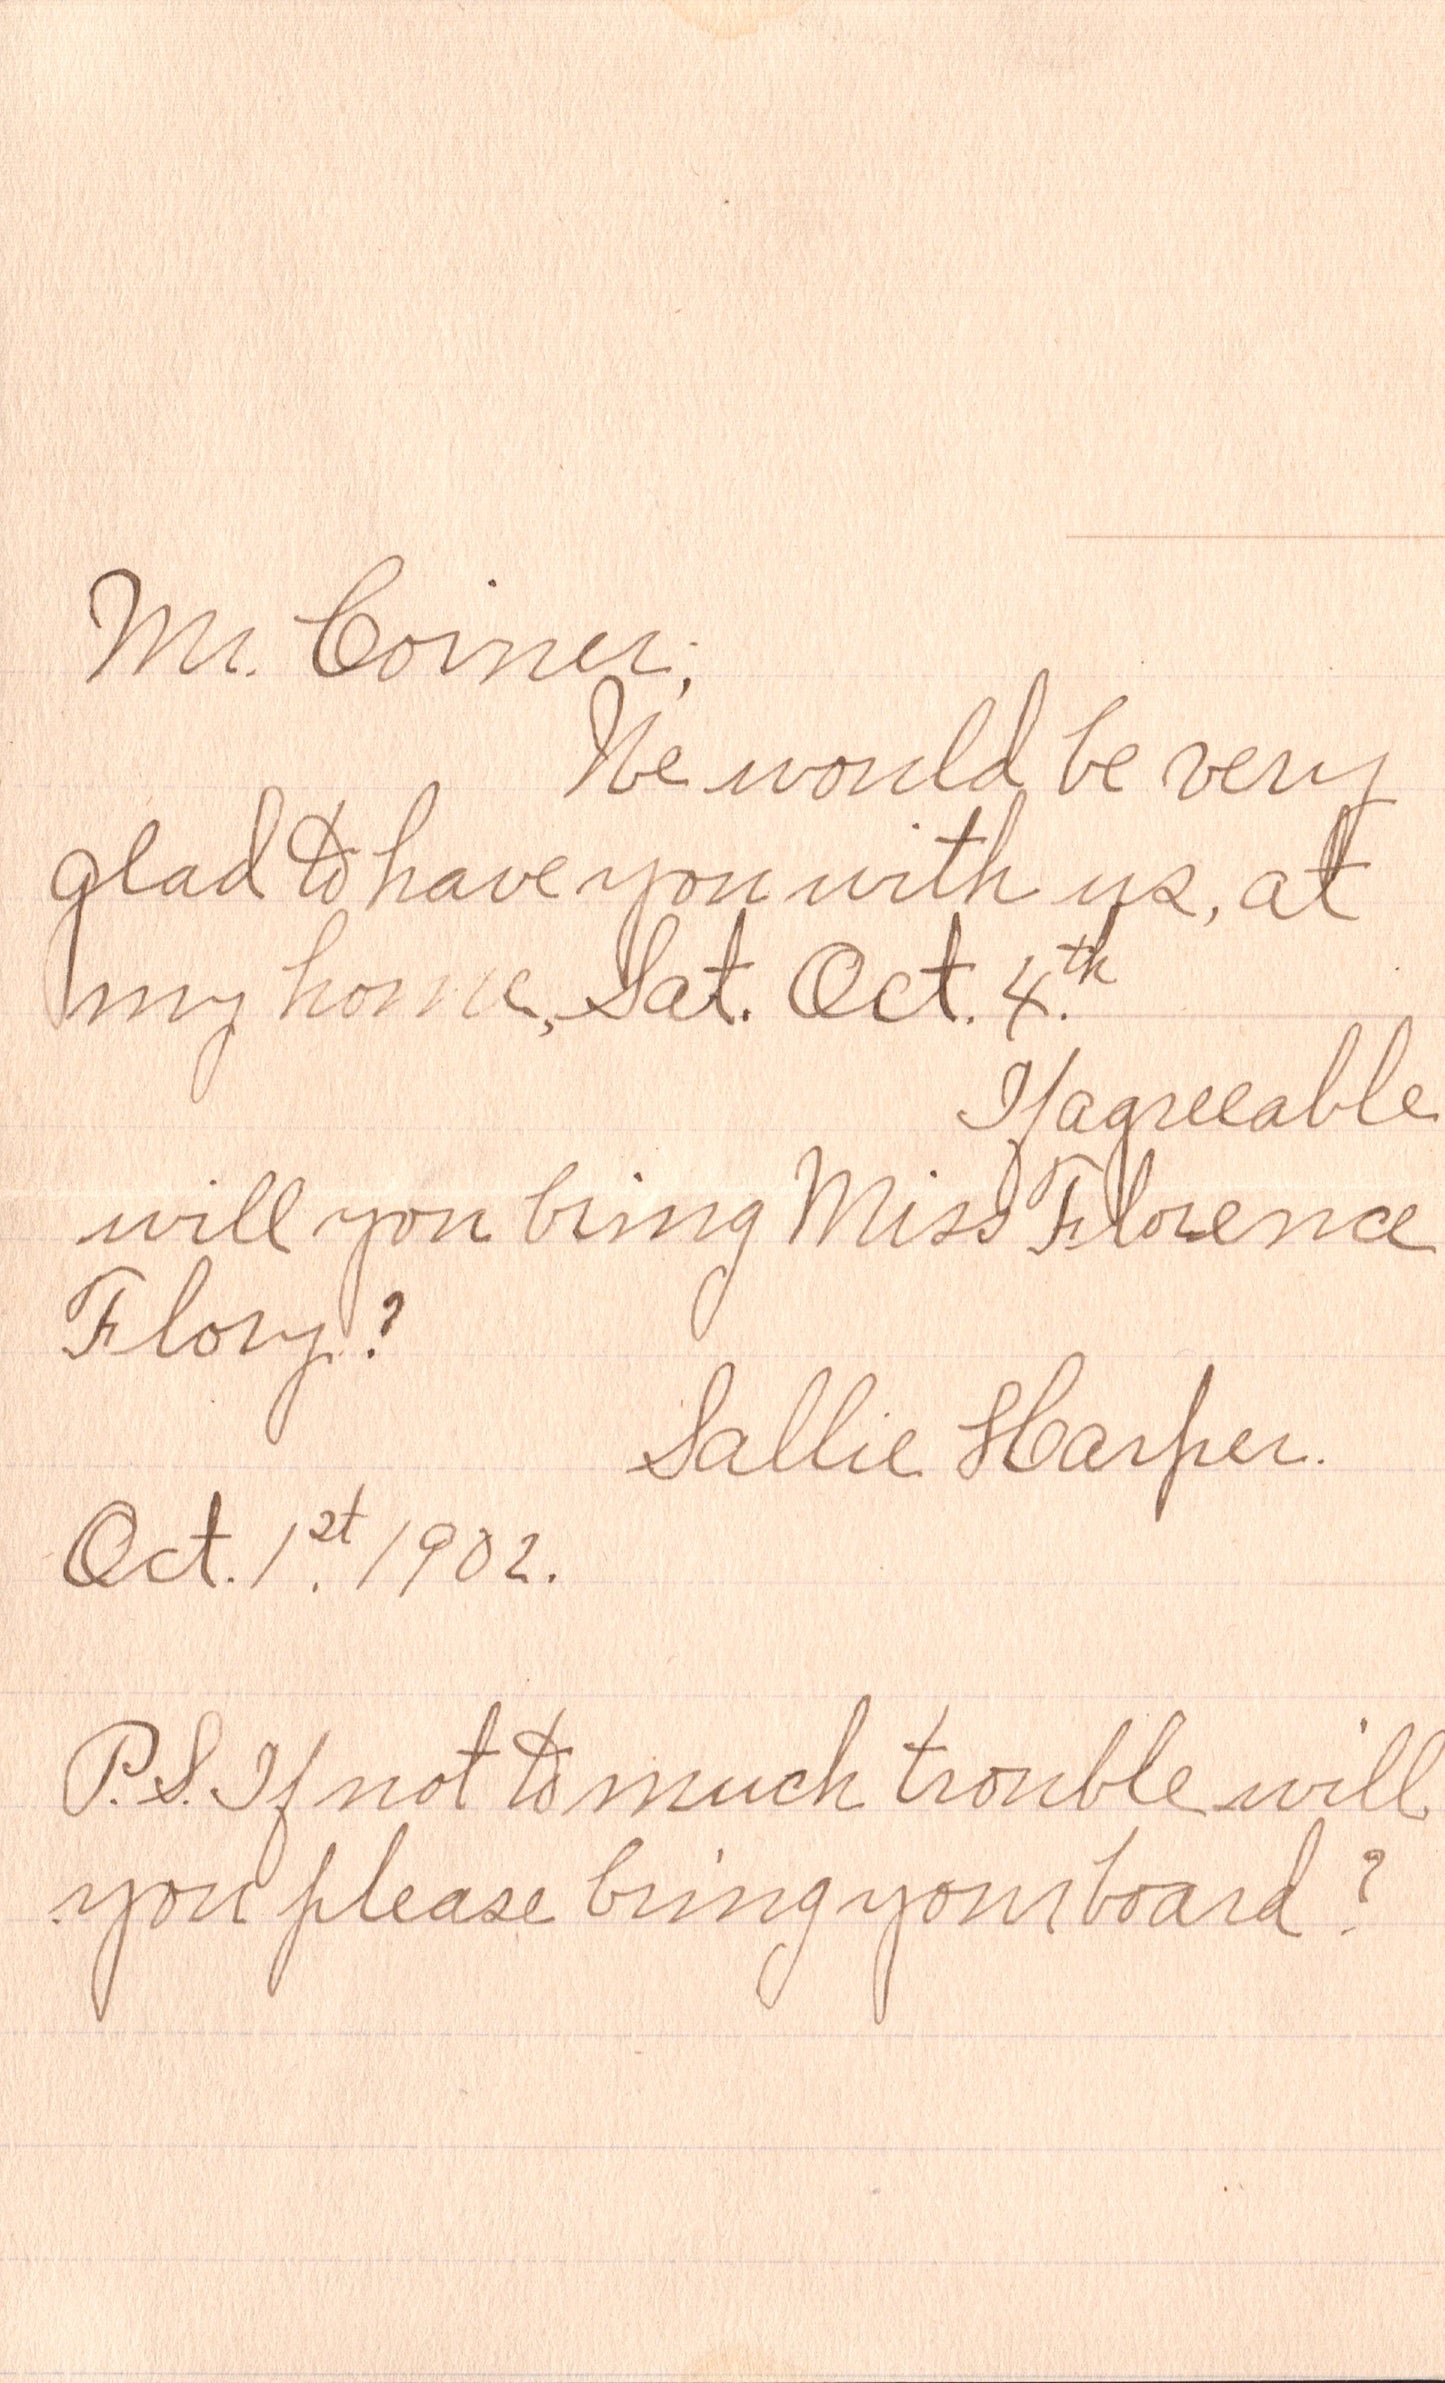 Mr. Coiner;
We would be very
glad to have you with us, at
my home, Sat. Oct. 4.th
If agreeable
will you bring Miss Florence
Flory?
Sallie Harper.
Oct. 1st. 1902.
P.S. If not to much trouble will
you please bring your board?